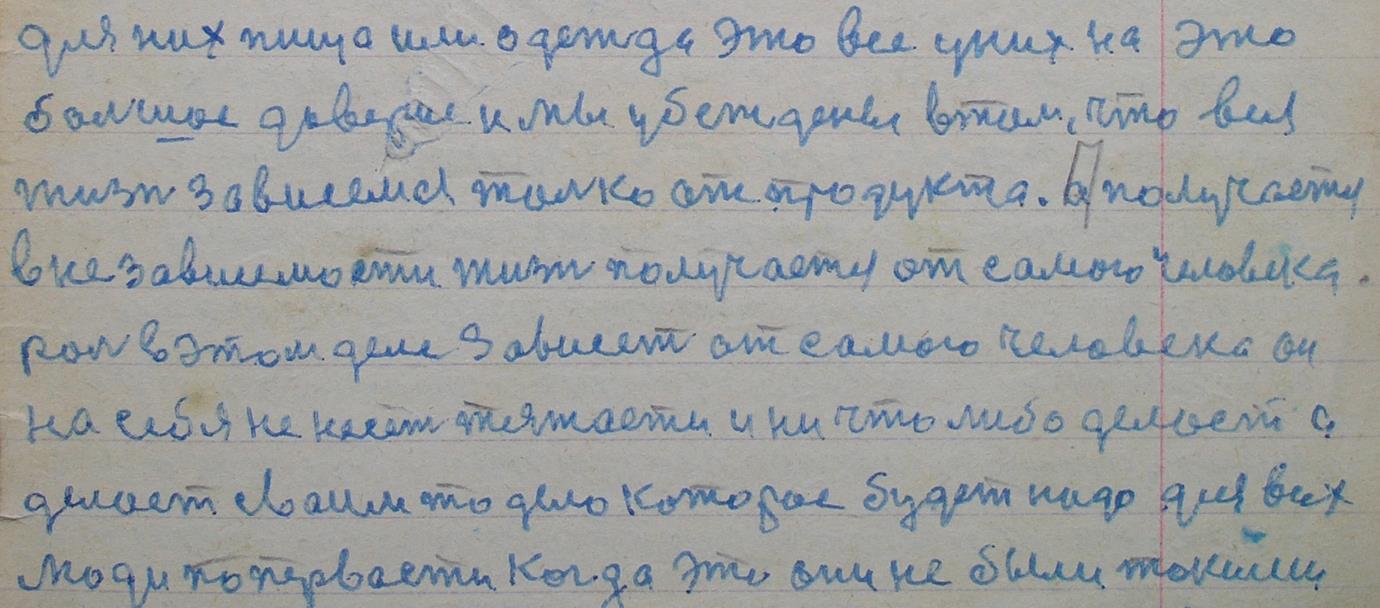 для них пища или одежда это все у них на это
болшое доверие и мы убеждены втом, что вся
жизн зависемая толко от продукта. А получается
в не зависемости жизн получается от самого человека.
рол в этом деле зависет от самого человека он
на себя не несет тяжасти и ни что либо делает а
делает сваим то дело которое будет надо для всех
люди попервасти когда это они не были такими